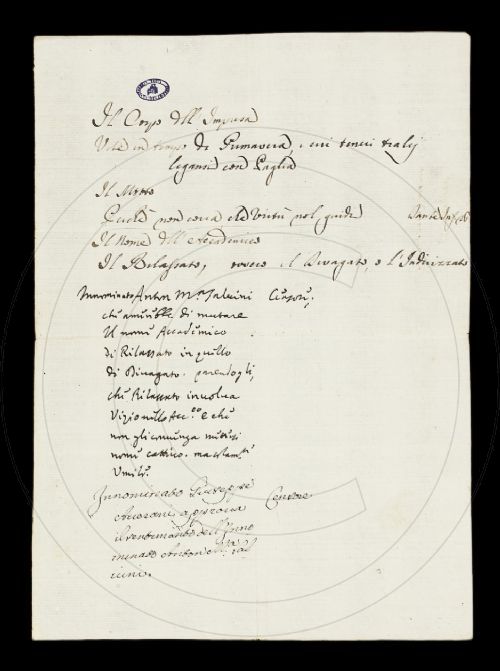 Il Corpo dell' Impresa
Vite in tempo di Primavera, i cui teneri tralcj
legansi con Paglia
Il Motto
Perchè non corra che Virtù nol guidi Dante Inf. 26
Il Nome dell' Accademico
Il Rilassato, ovvero il Divagato, o l'Indirizzato
Innominato Anton Ma. Salvini Censore;
che amerebbe di mutare
il nome Accademico
di Rilassato in quello
di Divagato. parendogli,
che Rilassato involva
Vizio nell' Acc.co e che
non gli convenga mettersi
nome cattivo. ma solam.te
Umile.
Innominato Giuseppe Censore
approva
il sentimento dell' Inno
minato Anton Ma. Sal
vini.